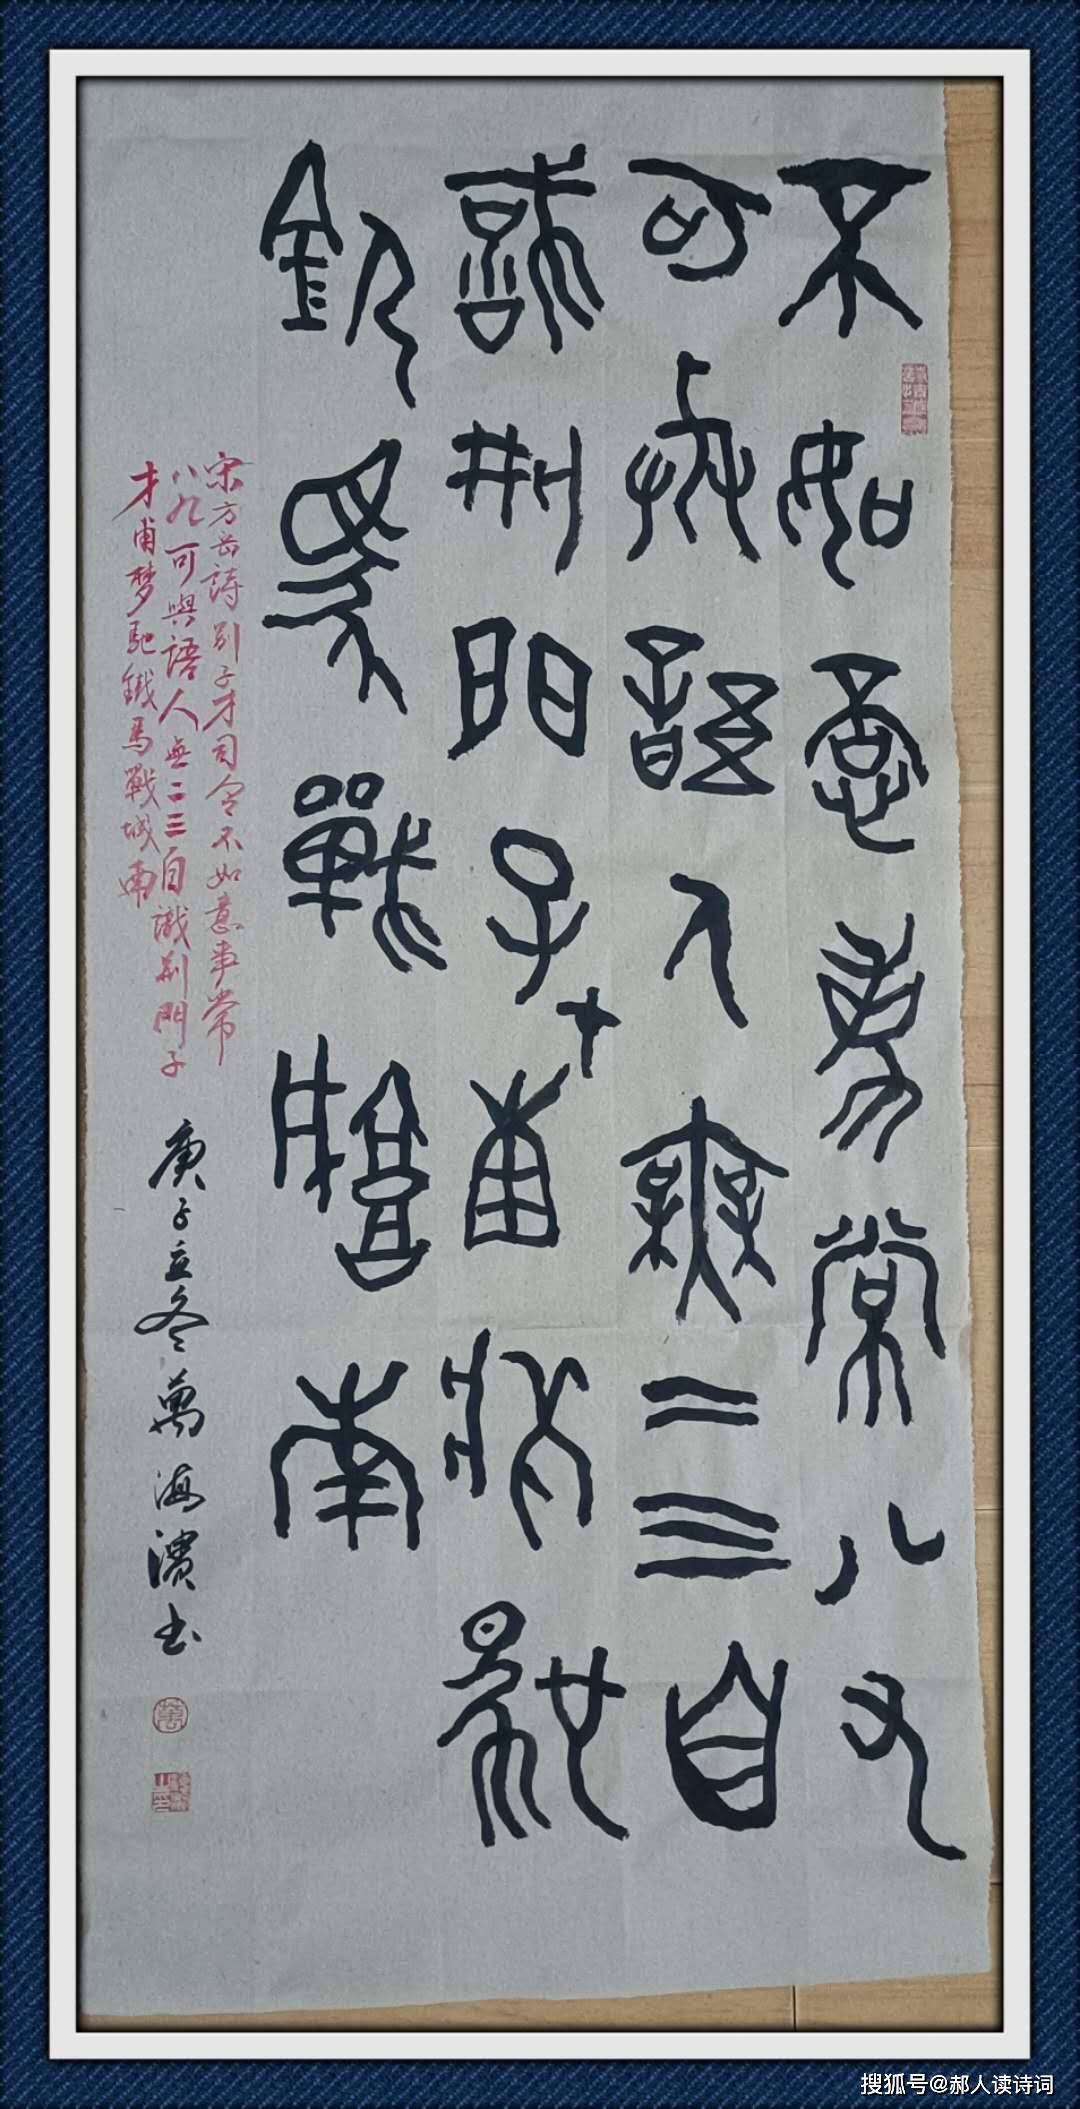 不如意事常八九
可與語人無二三自
識荊門子才甫夢馳
鐵馬戰城南
宋方岳詩别子才司令不如意事常
八九可與語人無二三自識荊門子
才甫梦馳鐵馬戰城南
庚子立冬萬海濱书
搜狐号@郝人读诗词